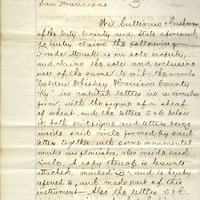 San Francisco
We, Sullivan & Cashman
of the City, County and State aforesaid,
do hereby claim the following
Trade Marks as our sole property,
and claim the sole and exclusive
use of the same: to wit, the words
"Golden Whiskey Harrison County
Ky" in capital letters in a
print, with the figure of a sheaf
of wheat, and the letters S & C below
it, both said figure and letters being
inside said circle formed by said
letters, together with some ornamental
marks and flourishes, also inside said
circle. A copy thereof is hereunto
attached, marked B, and is hereby
referred to, and made part of this
instrument. Also the letters S. C.